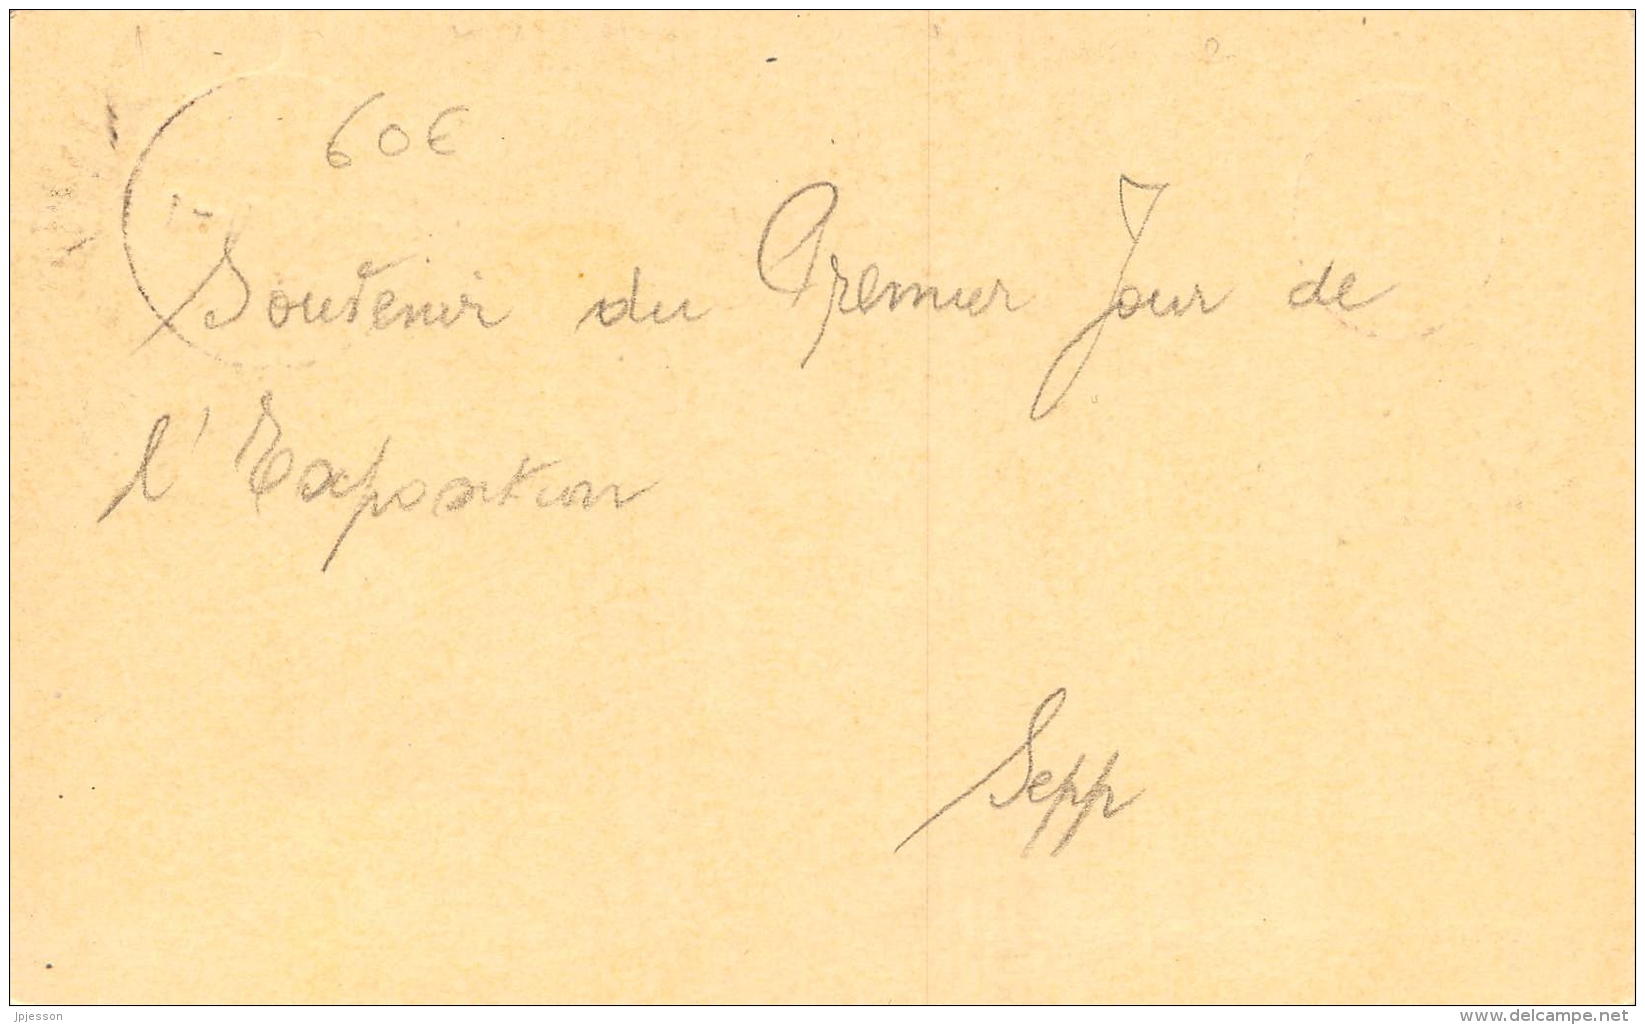 60€
Souvenir du Premier Jour de
l'Exposition
Sepp
jpjesson
www.delcampe.net